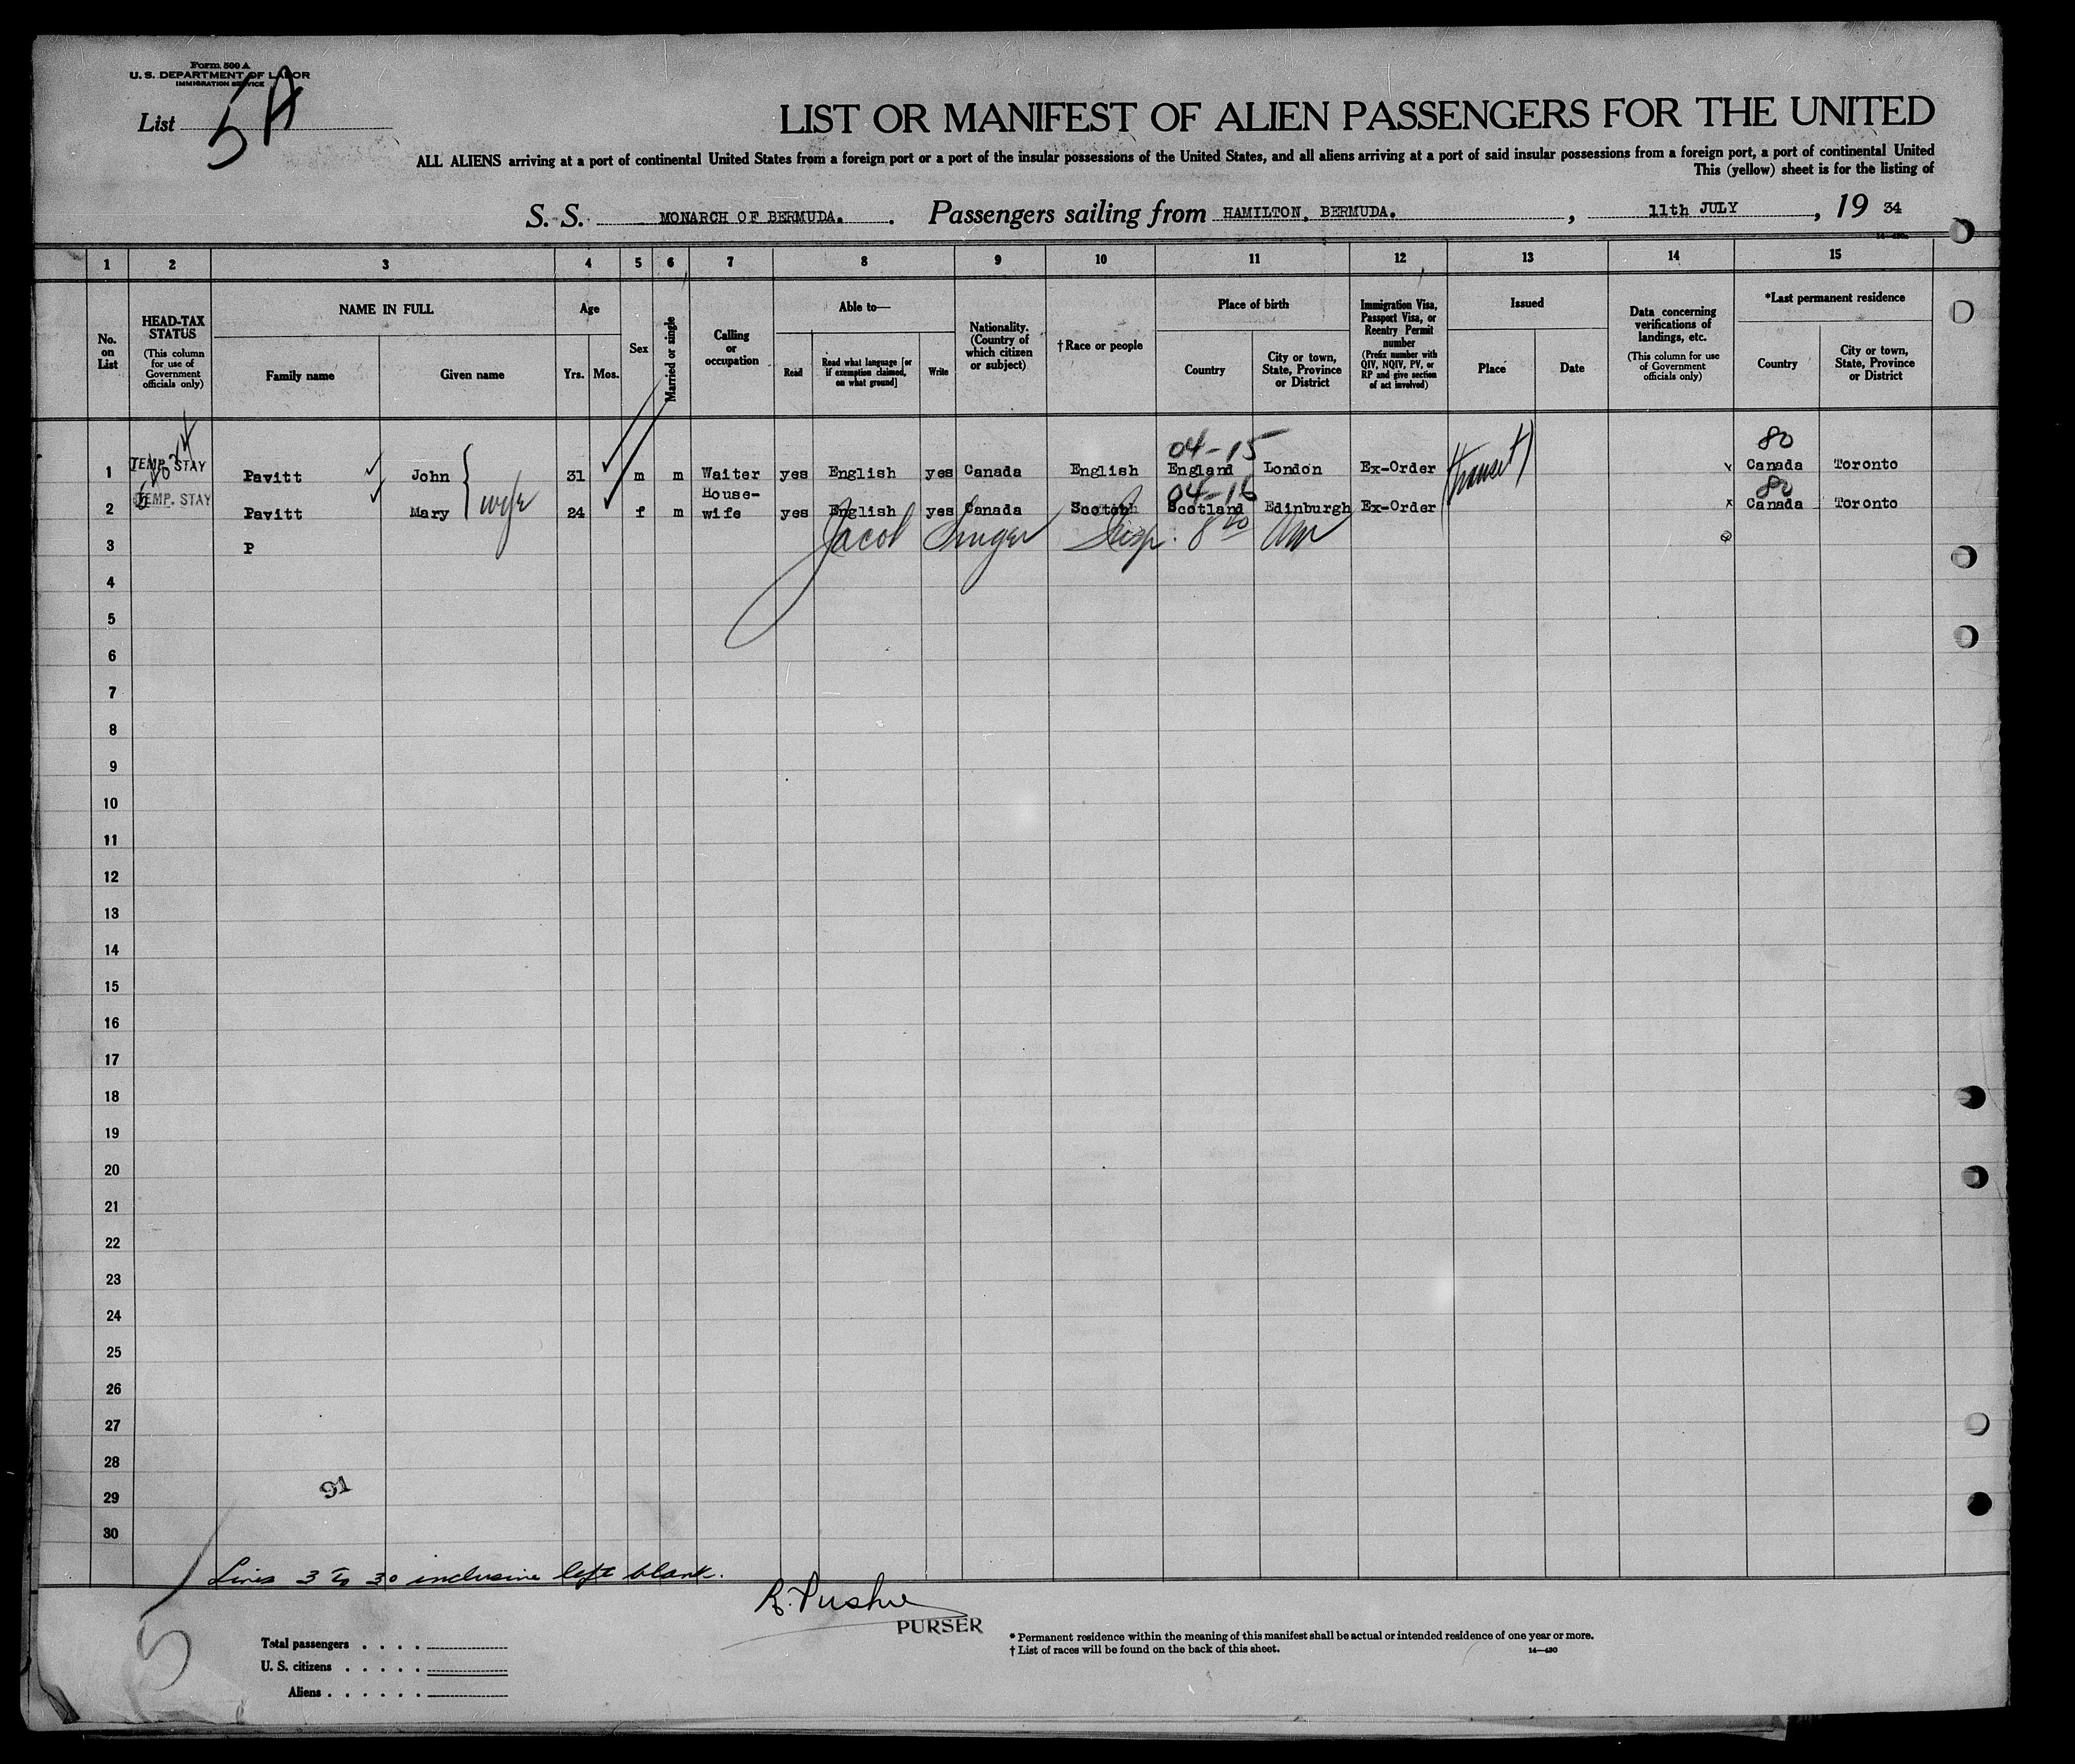 Form 500 A
U. S. DEPARTMENT OF LABOR
IMMIGRATION SERVICE
List 5A
LIST OR MANIFEST OF ALIEN PASSENGERS FOR THE UNITED
ALL ALIENS arriving at a port of continental United States from a foreign port or a port of the insular possessions of the United States, and all aliens arriving at a port of said insular possessions from a foreign port, a port of continental United
This (yellow) sheet is for the listing of
S. S. MONARCH OF BERMUDA. . Passengers sailing from HAMILTON, BERMUDA. , 11th JULY , 19 34
1 2 3 4 5 6 7 8 9 10 11 12 13 14 15
No. on List
HEAD-TAX STATUS (This column for use of Government officials only)
NAME IN FULL
Family name Given name
Age
Yrs. Mos.
Sex
Married or single
Calling or occupation
Able to—
Read Read what language [or if exemption claimed, on what ground] Write
Nationality. (Country of which citizen or subject)
†Race or people
Place of birth
Country City or town, State, Province or District
Immigration Visa, Passport Visa, or Reentry Permit number (Prefix number with QIV, NQIV, PV, or RP and give section of act involved)
Issued
Place Date
Data concerning verifications of landings, etc. (This column for use of Government officials only)
*Last permanent residence
Country City or town, State, Province or District
04-15 80
1 TEMP. STAY Pavitt John 31 m m Waiter yes English yes Canada English England London Ex-Order transit Canada Toronto
04-16 80
2 TEMP. STAY Pavitt Mary wife 24 f m House-wife yes English yes Canada Scotch Scotland Edinburgh Ex-Order x Canada Toronto
3 P Jacob Insp: 8
4
5
6
7
8
9
10
11
12
13
14
15
16
17
18
19
20
21
22
23
24
25
26
27
28
29
30
91
Lines 3 to 30 inclusive left blank.
PURSER
Total passengers . . . .
U. S. citizens . . . . .
Aliens . . . . . .
* Permanent residence within the meaning of this manifest shall be actual or intended residence of one year or more.
† List of races will be found on the back of this sheet.
14—430